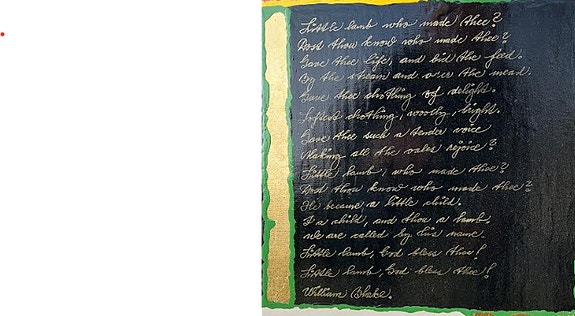 Little lamb who made thee?
Dost thou know who made thee?
Gave thee life, and bid the feed.
By the stream and o'er the mead.
Gave thee clothing of delight.
Softest clothing, woolly, bright.
Gave thee such a tender voice
Making all the vales rejoice?
Little lamb, who made thee?
Dost thou know who made thee?
He became a little child.
I a child, and thou a lamb.
We are called by his name.
Little lamb, God bless thee!
Little lamb, God bless thee!
William Blake.